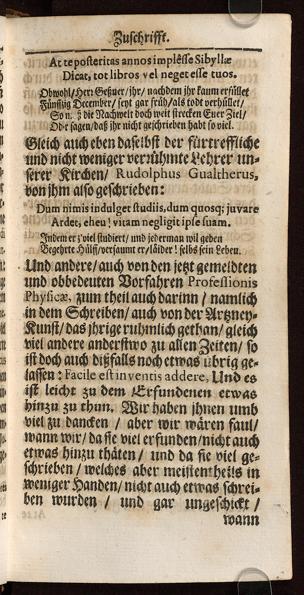 Zuschrifft.
At te posteritas annos implêsse Sibyllæ
Dicat, tot libros vel neget esse tuos.
Obwohl/Herr Geßner/ihr/nachdem ihr kaum erfüllet
Fünffzig December/seyt gar früh/als todt verhüllet/
So n. ß die Nachwelt doch weit strecken Euer Ziel/
Oder sagen/daß ihr nicht geschrieben habt so viel.
Gleich auch eben daselbst der fürtreffliche
und nicht weniger verrühmte Lehrer un-
serer Kirchen/ Rudolphus Gualtherus,
von ihm also geschrieben:
Dum nimis indulget studiis, dum quosq; juvare
Ardet, eheu! vitam negligit ipse suam.
Indem er z'viel studiert/ und jederman wil geben
Begehrte Hülff/versaumt er/läider! selbs sein Leben.
Und andere/ auch von den jetzt gemeldten
und obbedeuten Vorfahren Professionis
Physicæ, zum theil auch darinn / namlich
in dem Schreiben/ auch von der Artzney-
Kunst/ das jhrige ruhmlich gethan/ gleich
viel andere anderstwo zu allen Zeiten/ so
ist doch auch dißfalls noch etwas übrig ge-
lassen: Facile est inventis addere, Und es
ist leicht zu dem Erfundenen etwas
hinzu zu thun. Wir haben jhnen umb
viel zu dancken / aber wir wären faul/
wann wir/ da sie viel erfunden/nicht auch
etwas hinzu thäten/ und da sie viel ge-
schrieben/ welches aber meistentheils in
weniger Handen/ nicht auch etwas schrei-
ben wurden / und gar ungeschickt /
wann